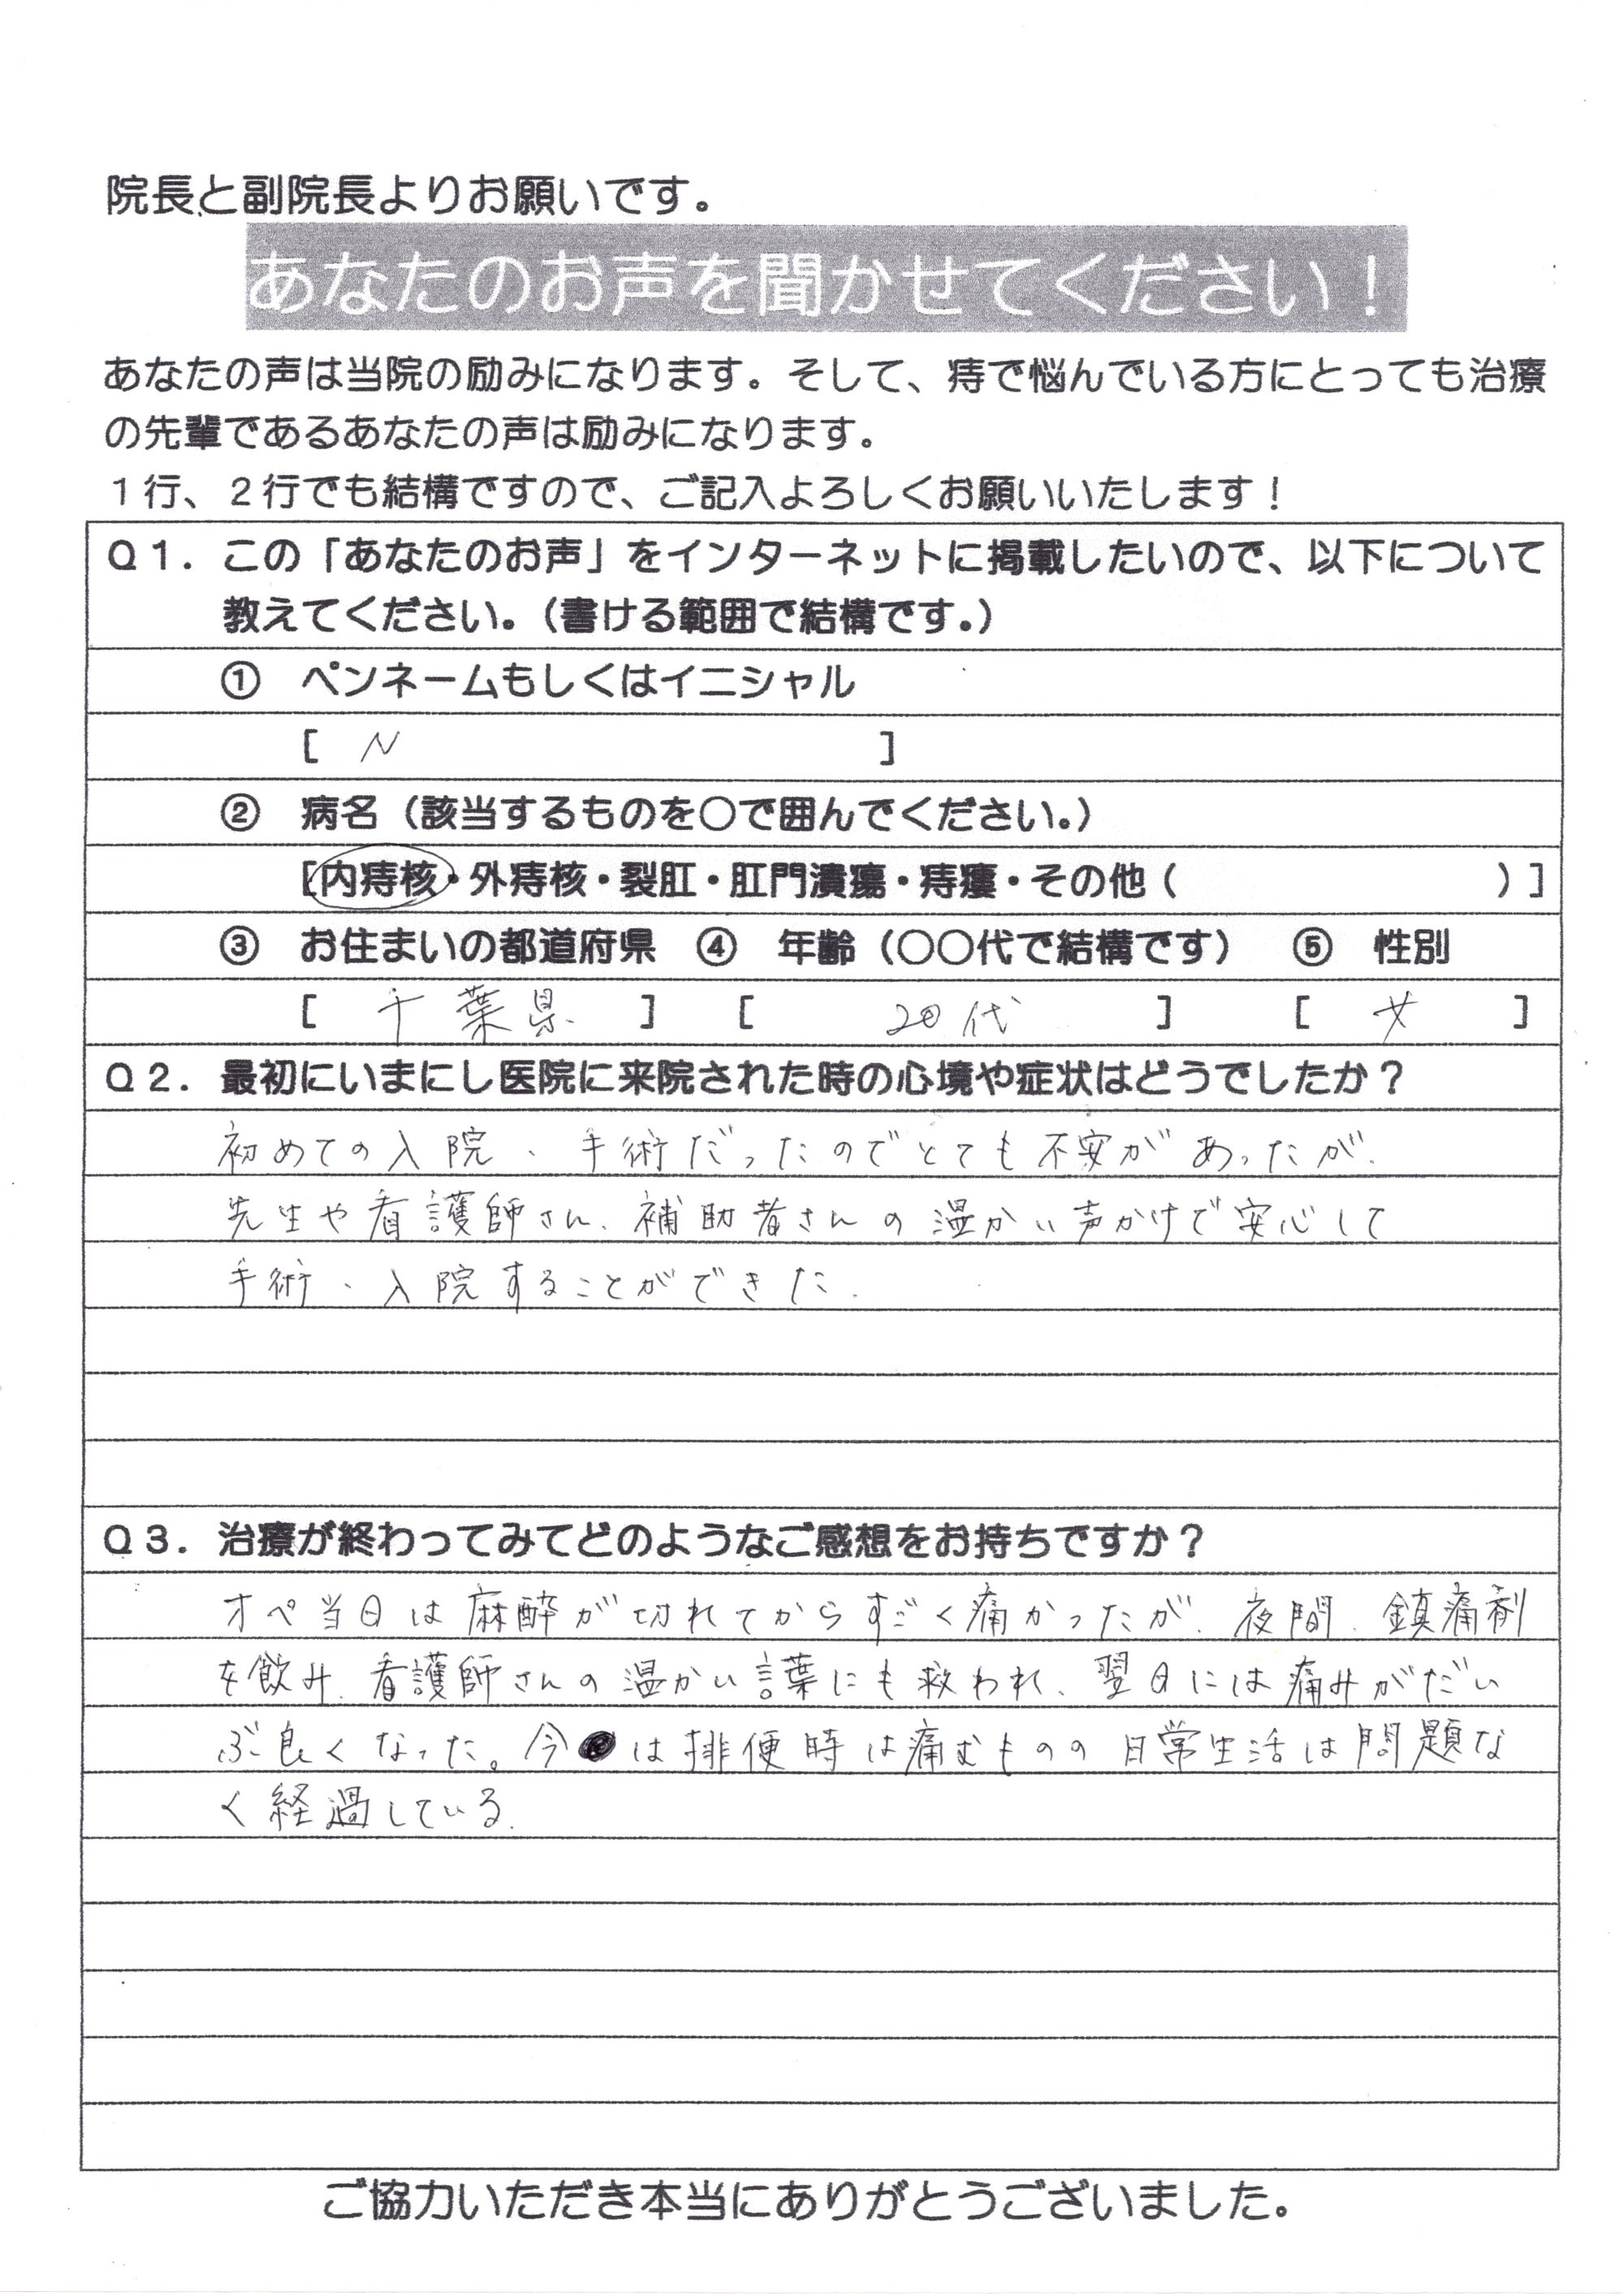 院長と副院長よりお願いです。
あなたのお声を聞かせてください！
あなたの声は当院の励みになります。そして、痔で悩んでいる方にとっても治療
の先輩であるあなたの声は励みになります。
１行、２行でも結構ですので、ご記入よろしくお願いいたします！
Ｑ１．この「あなたのお声」をインターネットに掲載したいので、以下について
教えてください。（書ける範囲で結構です。）
① ペンネームもしくはイニシャル
［ N ］
② 病名（該当するものを○で囲んでください。）
［内痔核・外痔核・裂肛・肛門潰瘍・痔瘻・その他（ ）］
③ お住まいの都道府県 ④ 年齢（○○代で結構です） ⑤ 性別
［ 千葉県 ］ ［ 20代 ］ ［ 女 ］
Ｑ２．最初にいまにし医院に来院された時の心境や症状はどうでしたか？
初めての入院、手術だったのでとても不安があったが、
先生や看護師さん、補助者さんの温かい声かけで安心して
手術、入院することができた。
Ｑ３．治療が終わってみてどのようなご感想をお持ちですか？
オペ当日は麻酔が切れてからすごく痛かったが、夜間、鎮痛剤
を飲み、看護師さんの温かい言葉にも救われ、翌日には痛みがだい
ぶ良くなった。今は排便時は痛むものの日常生活は問題な
く経過している。
ご協力いただき本当にありがとうございました。